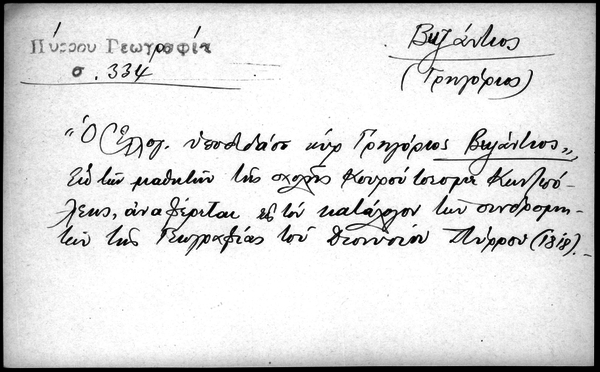 Πύρρου Γεωγραφία
σ. 334
Βυζάντιος
(Γρηγόριος)
"Ὁ Ἐλλογ. ὑποδιδάσ. κὺρ Γρηγόριος Βυζάντιος",
ἐκ τῶν μαθητῶν τῆς σχολῆς Κουρού τσεσμὲ Κων/πό-
λεως, ἀναφέρεται εἰς τὸν κατάλογον τῶν συνδρομη-
τῶν τῆς Γεωγραφίας τοῦ Διονυσίου Πύρρου (1818).